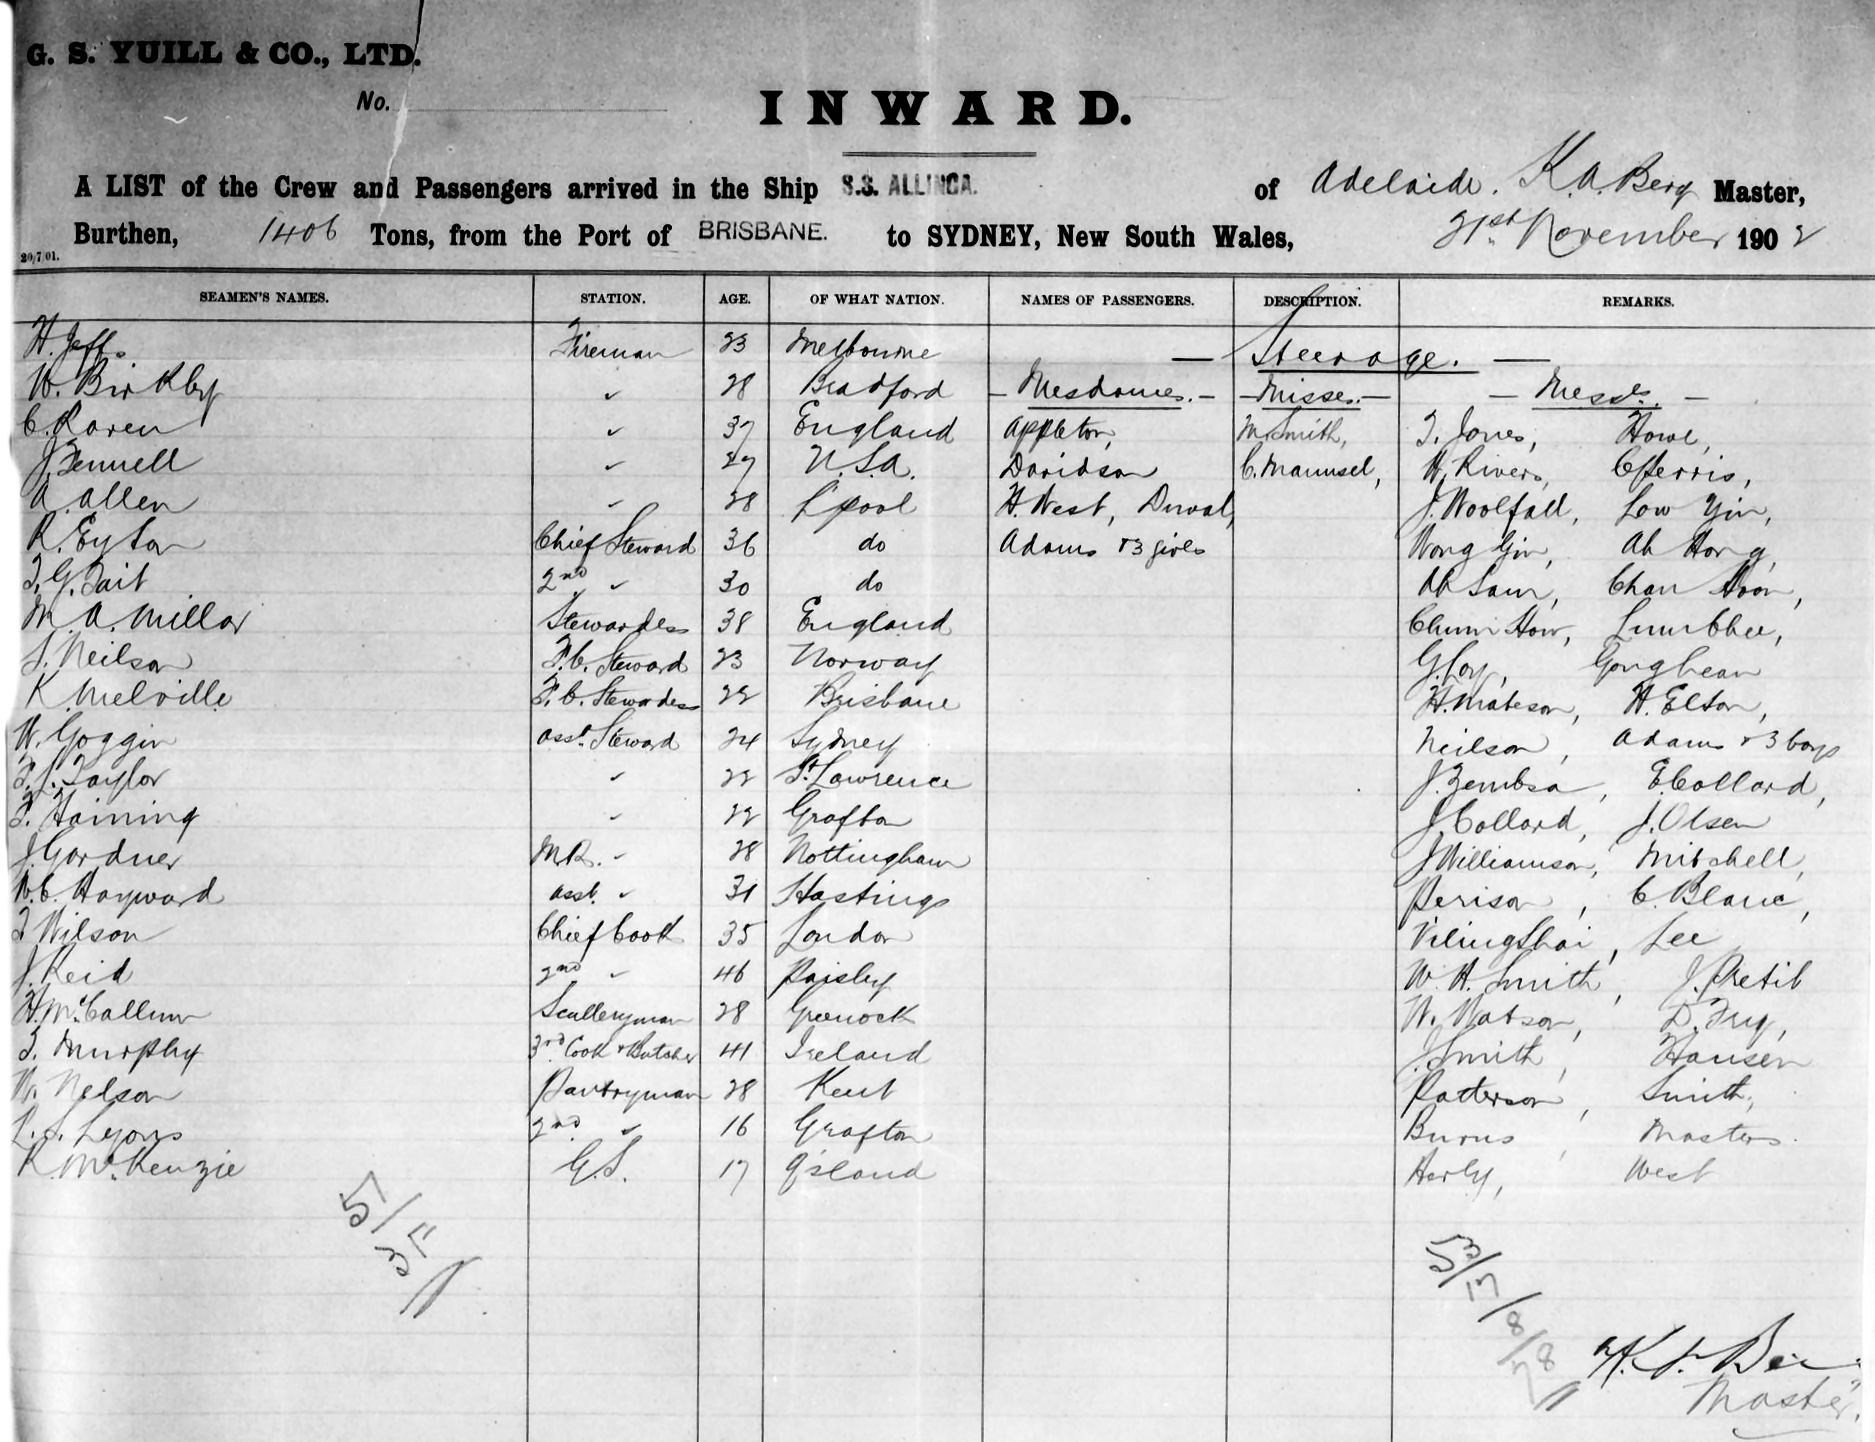 G. S. YUILL & CO., LTD.
No.
INWARD.
A LIST of the Crew and Passengers arrived in the Ship S.S. ALLINGA. of Adelaide. K.A. Berg Master,
Burthen, 1406 Tons, from the Port of BRISBANE. to SYDNEY, New South Wales, 21st November 1902
20/7/01.
SEAMEN'S NAMES. STATION. AGE. OF WHAT NATION. NAMES OF PASSENGERS. DESCRIPTION. REMARKS.
H. Jeffs Fireman 23 Melbourne — Steerage. —
W. Birkby " 28 Bradford — Mesdames. — — Misses. — — Messrs. —
C. Raven " 37 England Appleton, M. Smith, T. Jones, Howe,
J. Fennell " 27 U.S.A. Davidson C. Maunsel, W. Rivers, C Ferris,
A. Allen " 28 L'pool H. West, Duval, J. Woolfall, Low Yin,
R. Eyton Chief Steward 36 do Adams & 3 girls Wong Gin, Ah Hong,
T. G. Tait 2nd " 30 do Ah Sam, Chan Hoon,
M. A. Millar Stewardess 38 England Chum How, Lum Chee,
S. Neilson F.C. Steward 23 Norway G. Loy,
K. Melville F.C. Stewardess 22 Brisbane H. Mateson, H. Elton,
W. Goggin asst. Steward 24 Sydney Neilson, Adams & 3 boys
F. J. Taylor " 22 St. Lawrence J. Zembsa, E. Collard,
F. Haining " 22 Grafton J. Collard, J. Olsen
J. Gardner M.R. " 28 Nottingham J Williamson, Mitchell,
W. C. Hayward asst. " 31 Hastings Perison, C. Blanc,
T Wilson Chief Cook 35 London Lee
J. Reid 2nd " 46 Paisley W. H. Smith, J. Pretit
H. McCallum Sculleryman 28 Greenock W. Watson,
T. Murphy 3rd Cook & Butcher 41 Ireland J Smith, Hansen
W. Nelson Pantryman 28 Kent Patterson, Smith,
L. S. Lyons 2nd " 16 Grafton Burns, Masters.
K. McKenzie G.S. 17 Q'sland Herly, West
51/
53/
Master.